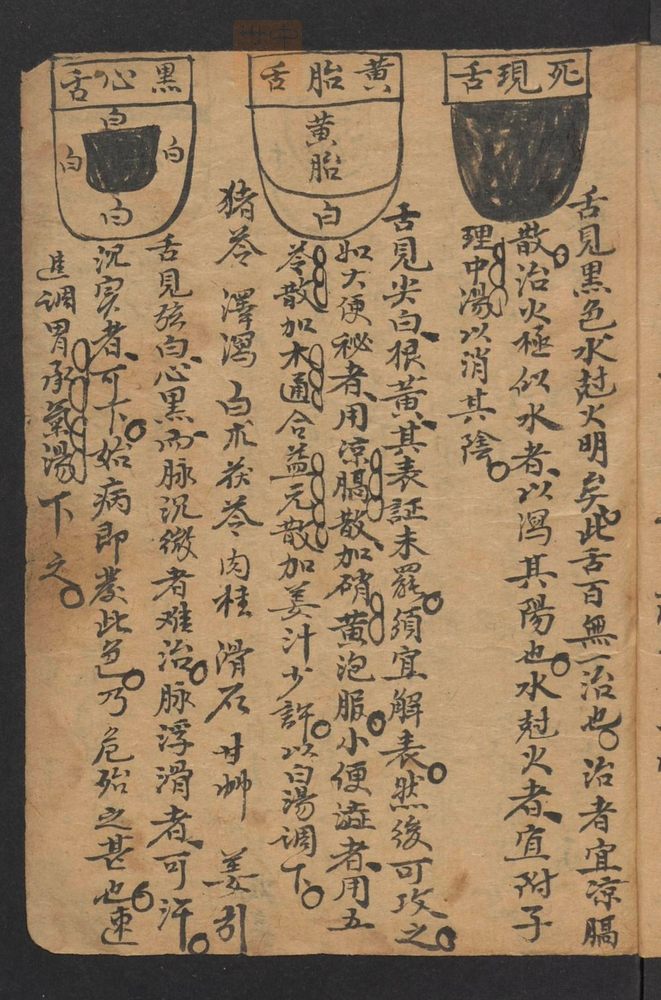 死現舌
舌見黑色水尅火明矣此舌百無一治也治者宜凉膈
散治火極似水者以瀉其陽也水尅火者宜附子
理中湯以消其陰
黄胎舌
黄胎
白
舌見尖白根黄其表証未罷須宜解表然後可攻之
如大便秘者用凉膈散加硝黄泡服小便澁者用五
苓散加木通合益元散加姜汁少許以白湯調下
猪苓 澤瀉 白朮 茯苓 肉桂 滑石 甘艸 姜引
黑心舌
白
白
白
白
舌見弦白心黑而脉沉微者难治脉浮滑者可汗
沉实者可下始病即發此色乃危殆之甚也速
進調胃承氣湯下之